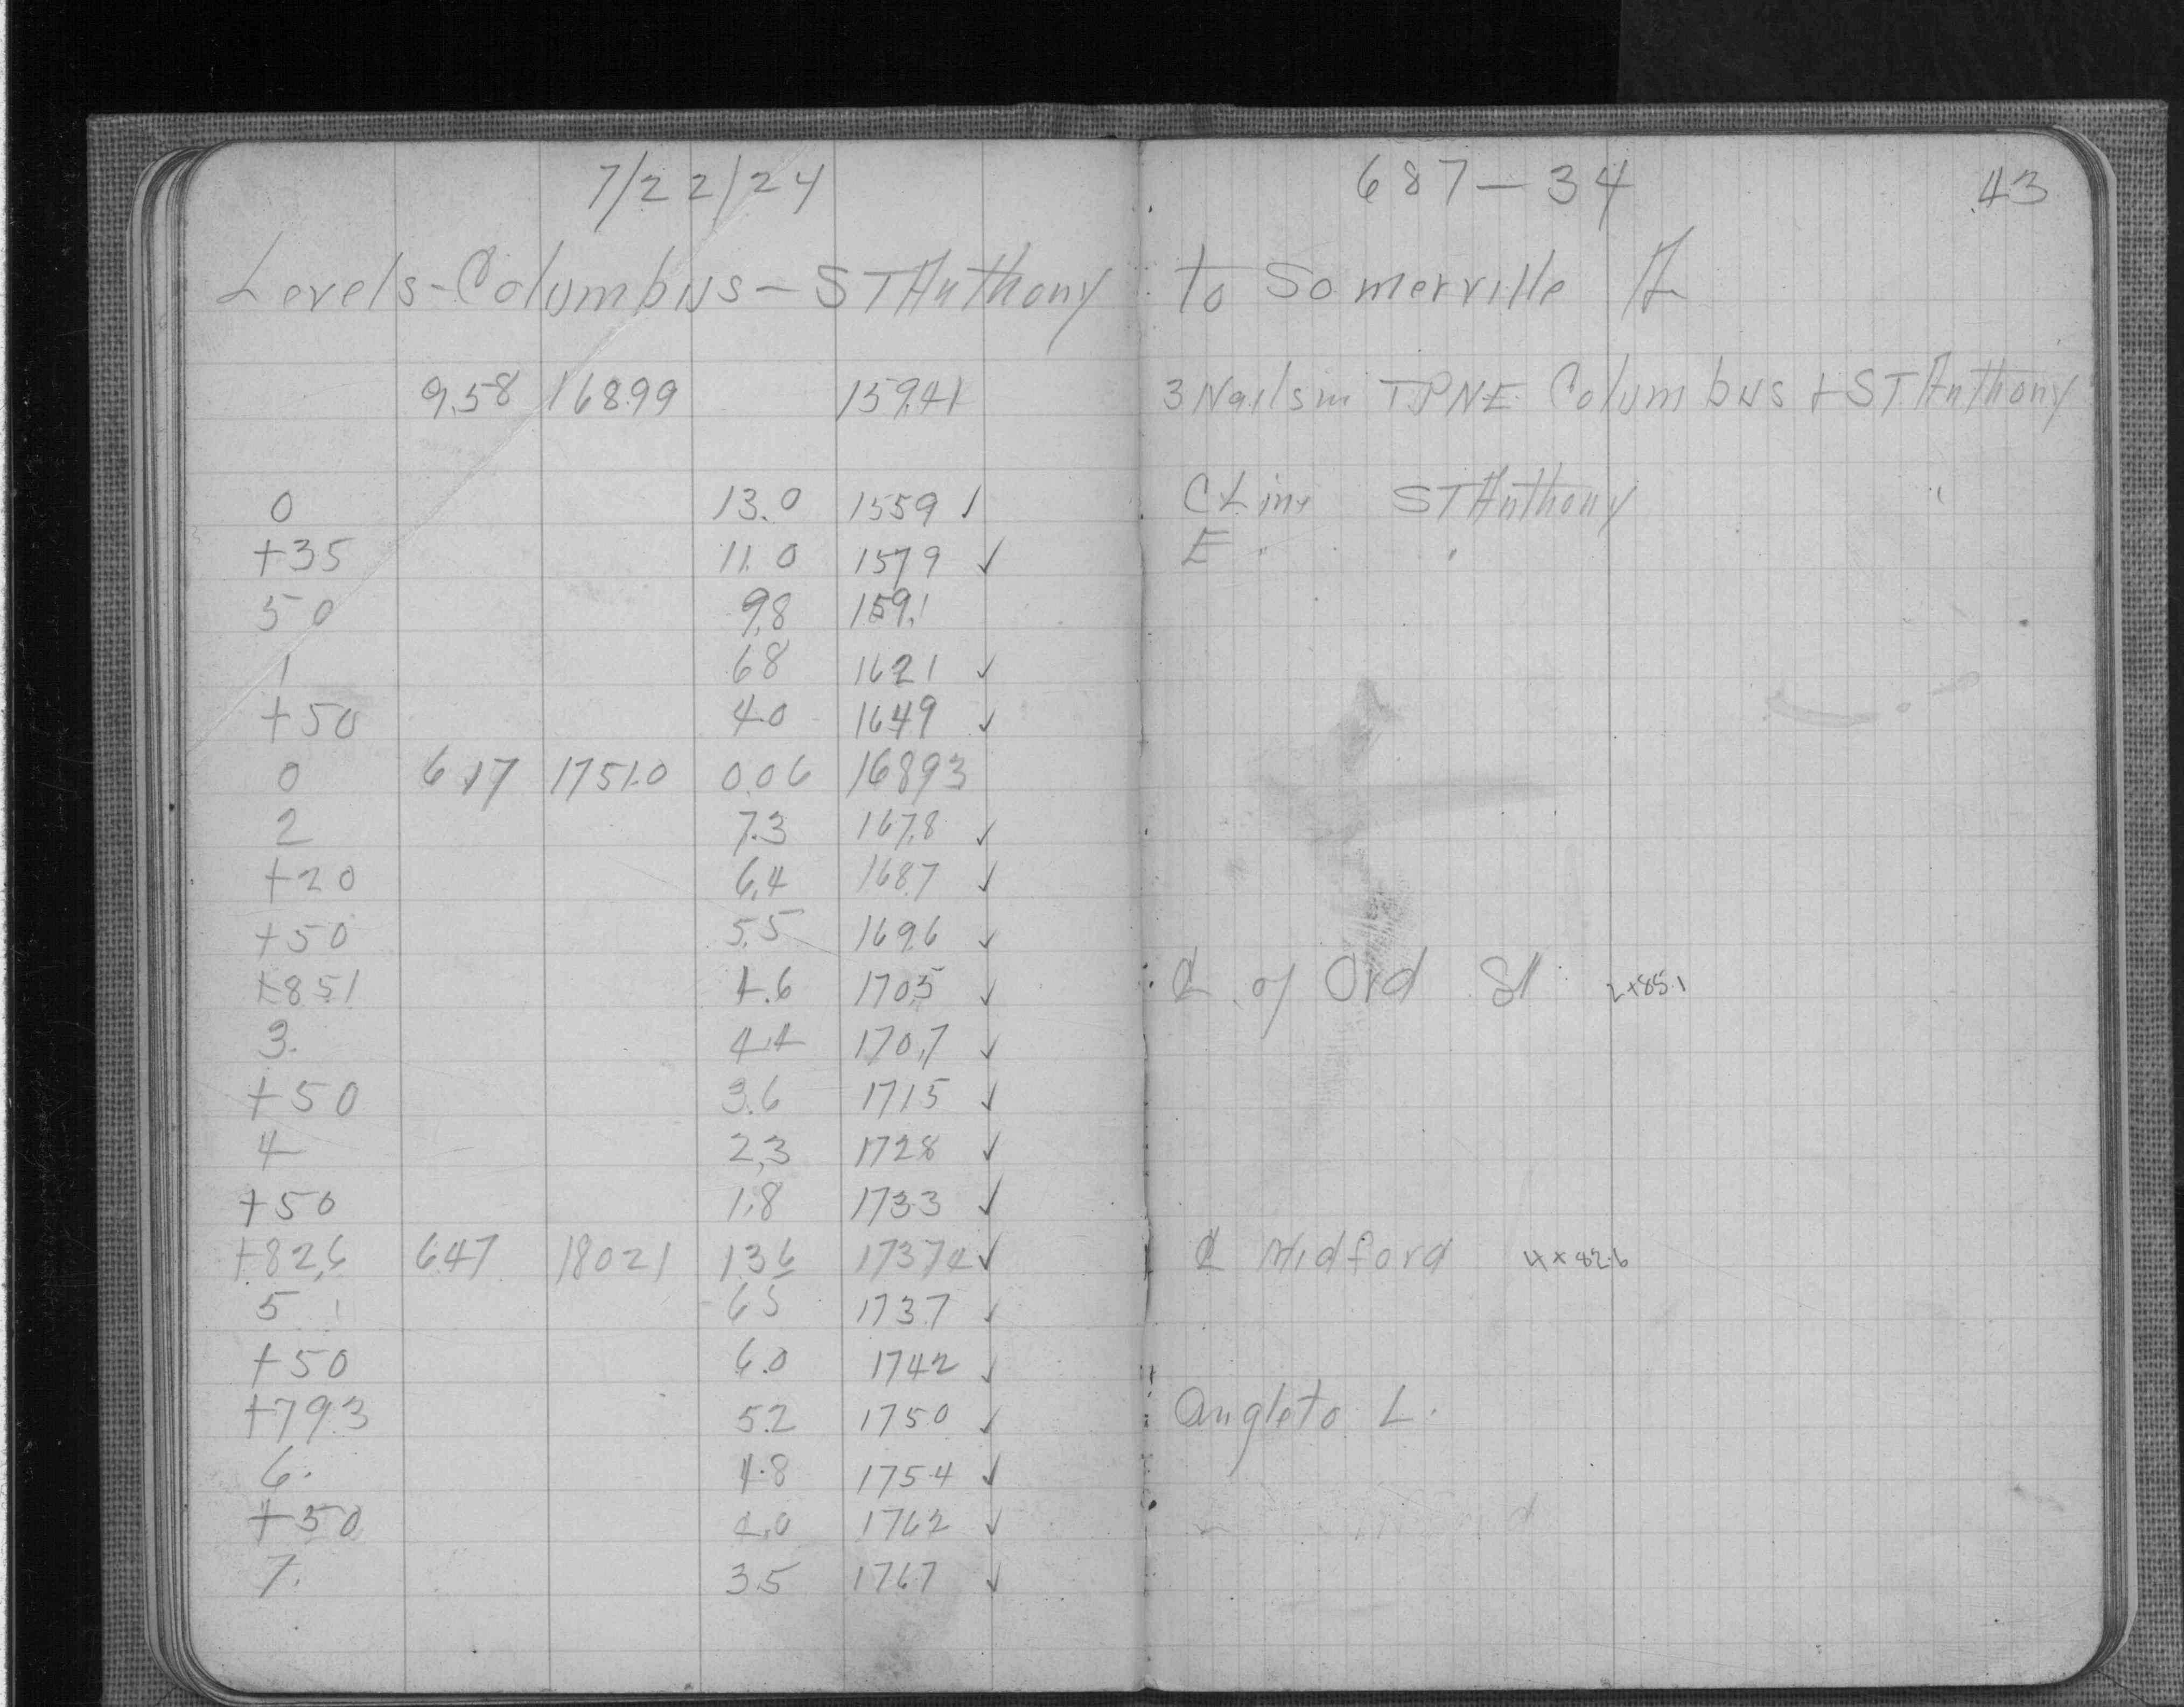 7/22/24 687-34 43
Levels-Columbus-ST Anthony to Somerville
9.58 168.99 159.41 3 Nails in T.P. N.E. Columbus + ST Anthony
0 13.0 155.9 ✓ C Line ST Anthony "
+35 11.0 157.9 ✓ E " "
50 9.8 159.1
1 6.8 162.1 ✓
+50 4.0 164.9 ✓
0 6.17 175.10 0.06 168.93
2 7.3 167.8 ✓
+20 6.4 168.7 ✓
+50 5.5 169.6 ✓
+85.1 4.6 170.5 ✓ ℄ of Ord St 2+85.1
3. 4.4 170.7 ✓
+50 3.6 171.5 ✓
4 2.3 172.8 ✓
+50 1.8 173.3 ✓
+82.6 6.47 180.21 1.36 173.74 ✓ ℄ Midford 4+82.6
5 6.5 173.7 ✓
+50 6.0 174.2 ✓
+79.3 5.2 175.0 ✓ Angle to L.
6. 4.8 175.4 ✓
+50 4.0 176.2 ✓
7. 3.5 176.7 ✓